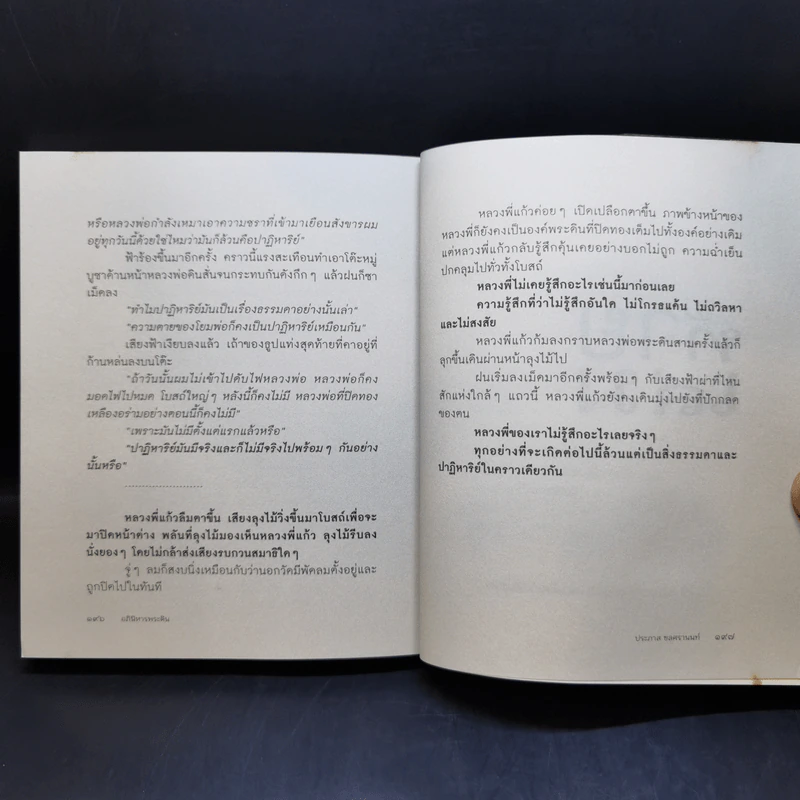 หรือหลวงพ่อกำลังเหมาเอาความชราที่เข้ามาเยือนสังขารผม
อยู่ทุกวันนี้ด้วยใช่ไหมว่ามันก็ล้วนคือปาฏิหาริย์"
ฟ้าร้องขึ้นมาอีกครั้ง คราวนี้แรงสะเทือนทำเอาโต๊ะหมู่
บูชาด้านหน้าหลวงพ่อดินสั่นจนกระทบกันดังกึกๆ แล้วฝนก็ซา
เม็ดลง
"ทำไมปาฏิหาริย์มันเป็นเรื่องธรรมดาอย่างนั้นเล่า"
"ความตายของโยมพ่อก็คงเป็นปาฏิหาริย์เหมือนกัน"
เสียงฟ้าเงียบลงแล้ว เถ้าของธูปแท่งสุดท้ายที่คาอยู่ที่
ก้านหล่นลงบนโต๊ะ
"ถ้าวันนั้นผมไม่เข้าไปดับไฟหลวงพ่อ หลวงพ่อก็คง
มอดไฟไปหมด โบสถ์ใหญ่ๆ หลังนี้ก็คงไม่มี หลวงพ่อที่ปิดทอง
เหลืองอร่ามอย่างตอนนี้ก็คงไม่มี"
"เพราะมันไม่มีตั้งแต่แรกแล้วหรือ"
"ปาฏิหาริย์มันมีจริงและก็ไม่มีจริงไปพร้อมๆ กันอย่าง
นั้นหรือ"
หลวงพี่แก้วลืมตาขึ้น เสียงลุงไม้วิ่งขึ้นมาโบสถ์เพื่อจะ
มาปิดหน้าต่าง พลันที่ลุงไม้มองเห็นหลวงพี่แก้ว ลุงไม้รีบลง
นั่งยองๆ โดยไม่กล้าส่งเสียงรบกวนสมาธิใดๆ
จู่ๆ ลมก็สงบนิ่งเหมือนกับว่านอกวัดมีพัดลมตั้งอยู่และ
ถูกปิดไปในทันที
๑๙๖ อภินิหารพระดิน
หลวงพี่แก้วค่อยๆ เปิดเปลือกตาขึ้น ภาพข้างหน้าของ
หลวงพี่ก็ยังคงเป็นองค์พระดินที่ปิดทองเต็มไปทั้งองค์อย่างเดิม
แต่หลวงพี่แก้วกลับรู้สึกคุ้นเคยอย่างบอกไม่ถูก ความฉ่ำเย็น
ปกคลุมไปทั่วทั้งโบสถ์
หลวงพี่ไม่เคยรู้สึกอะไรเช่นนี้มาก่อนเลย
ความรู้สึกที่ว่าไม่รู้สึกอันใด ไม่โกรธแค้น ไม่ถวิลหา
และไม่สงสัย
หลวงพี่แก้วก้มลงกราบหลวงพ่อพระดินสามครั้งแล้วก็
ลุกขึ้นเดินผ่านหน้าลุงไม้ไป
ฝนเริ่มลงเม็ดมาอีกครั้งพร้อมๆ กับเสียงฟ้าผ่าที่ไหน
สักแห่งใกล้ๆ แถวนี้ หลวงพี่แก้วยังคงเดินมุ่งไปยังที่ปักกลด
ของตน
หลวงพี่ของเราไม่รู้สึกอะไรเลยจริงๆ
ทุกอย่างที่จะเกิดต่อไปนี้ล้วนแต่เป็นสิ่งธรรมดาและ
ปาฏิหาริย์ในคราวเดียวกัน
ประภาส ชลศรานนท์ ๑๙๗